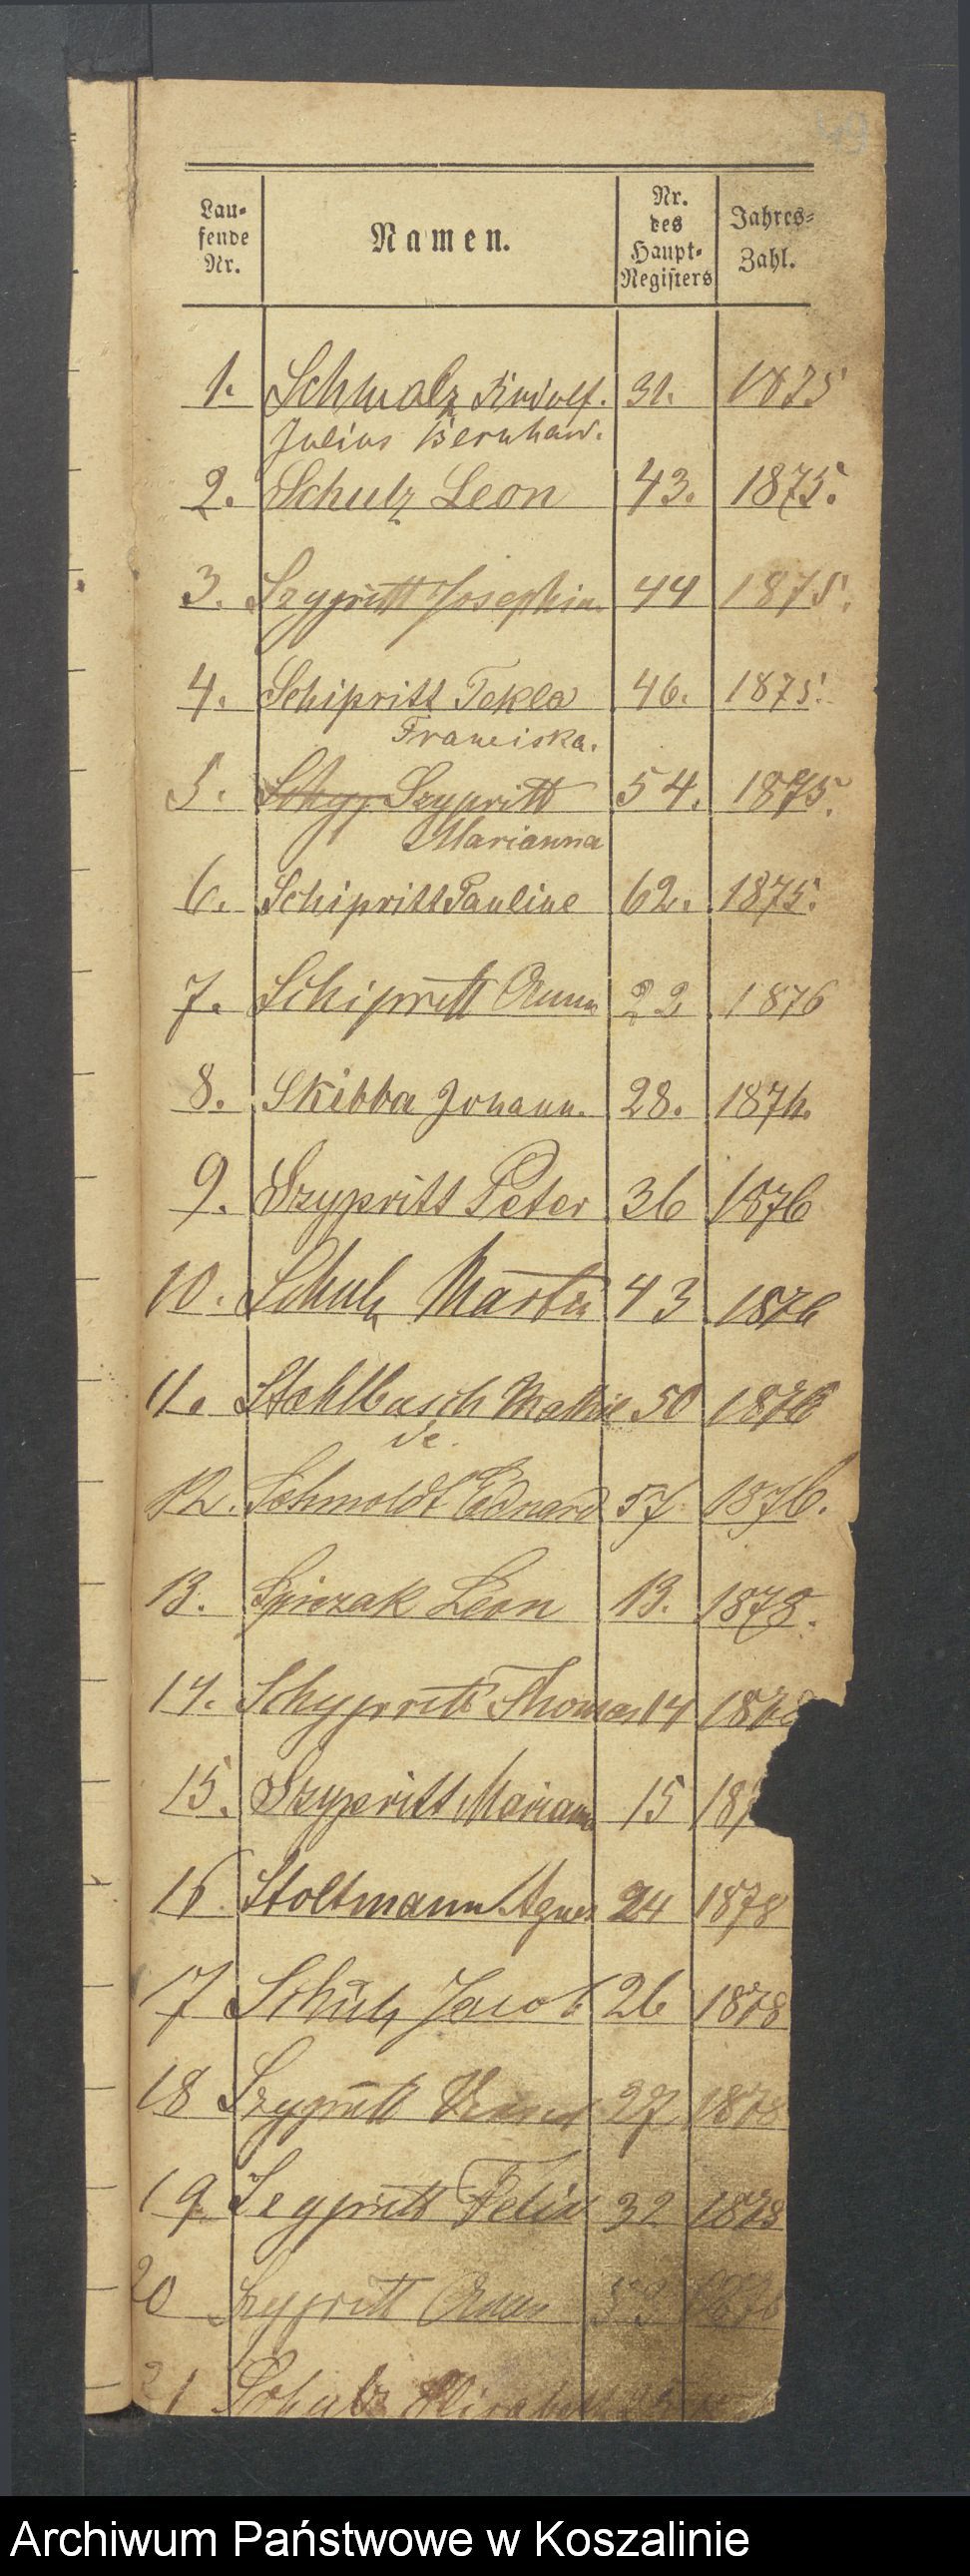 49
Lau-
fende
Nr.
Namen.
Nr.
des
Haupt-
Registers
Jahres-
Zahl.
1. Schmalz Rudolf. 31. 1875
Julius Bernhard.
2. Schulz Leon 43. 1875.
3. Szypritt Josephin. 44 1875.
4. Schipritt Tekla 46. 1875.
Franciska.
5. Schyp Szypritt 54. 1875.
Marianna
6. Schipritt Pauline 62. 1875.
7. Schipritt Anna 22 1876
8. Skibba Johann. 28. 1876.
9. Szypritt Peter 36 1876
10. Schulz Martin 43 1876
11. Stahlbusch Mathil 50 1876
de.
12. Schmoldt Eduard 57 1876.
13. Spiczak Leon 13. 1878.
14. Schypritt Thomas 14 1878
15. Szypritt Marianna 15 187
16 Stoltmann Agnes 24 1878
17 Schulz Jacob 26 1878
18 Szypritt 27 1878
19 Szypritt Felix 32 1878
20 Szypritt Anna
21 Schulz Elisabeth
Archiwum Państwowe w Koszalinie